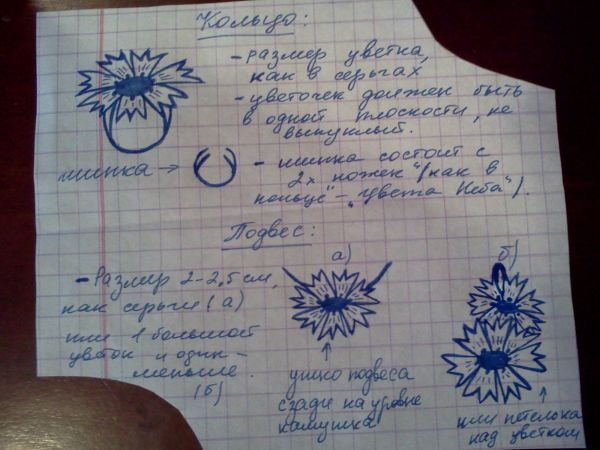 Кольцо:
- Размер цветка,
как в серьгах
- цветочек должен быть
в одной плоскости, не
выпуклый.
шинка →
- шинка состоит с
2х ножек (как в
кольце - "Цвета Неба").
Подвес:
- Размер 2-2,5 см,
как серьги (а)
или 1 большой
цветок и один -
меньше.
(б)
а)
ушко подвеса
сзади на уровне
камушка
б)
или петелька
над цветком